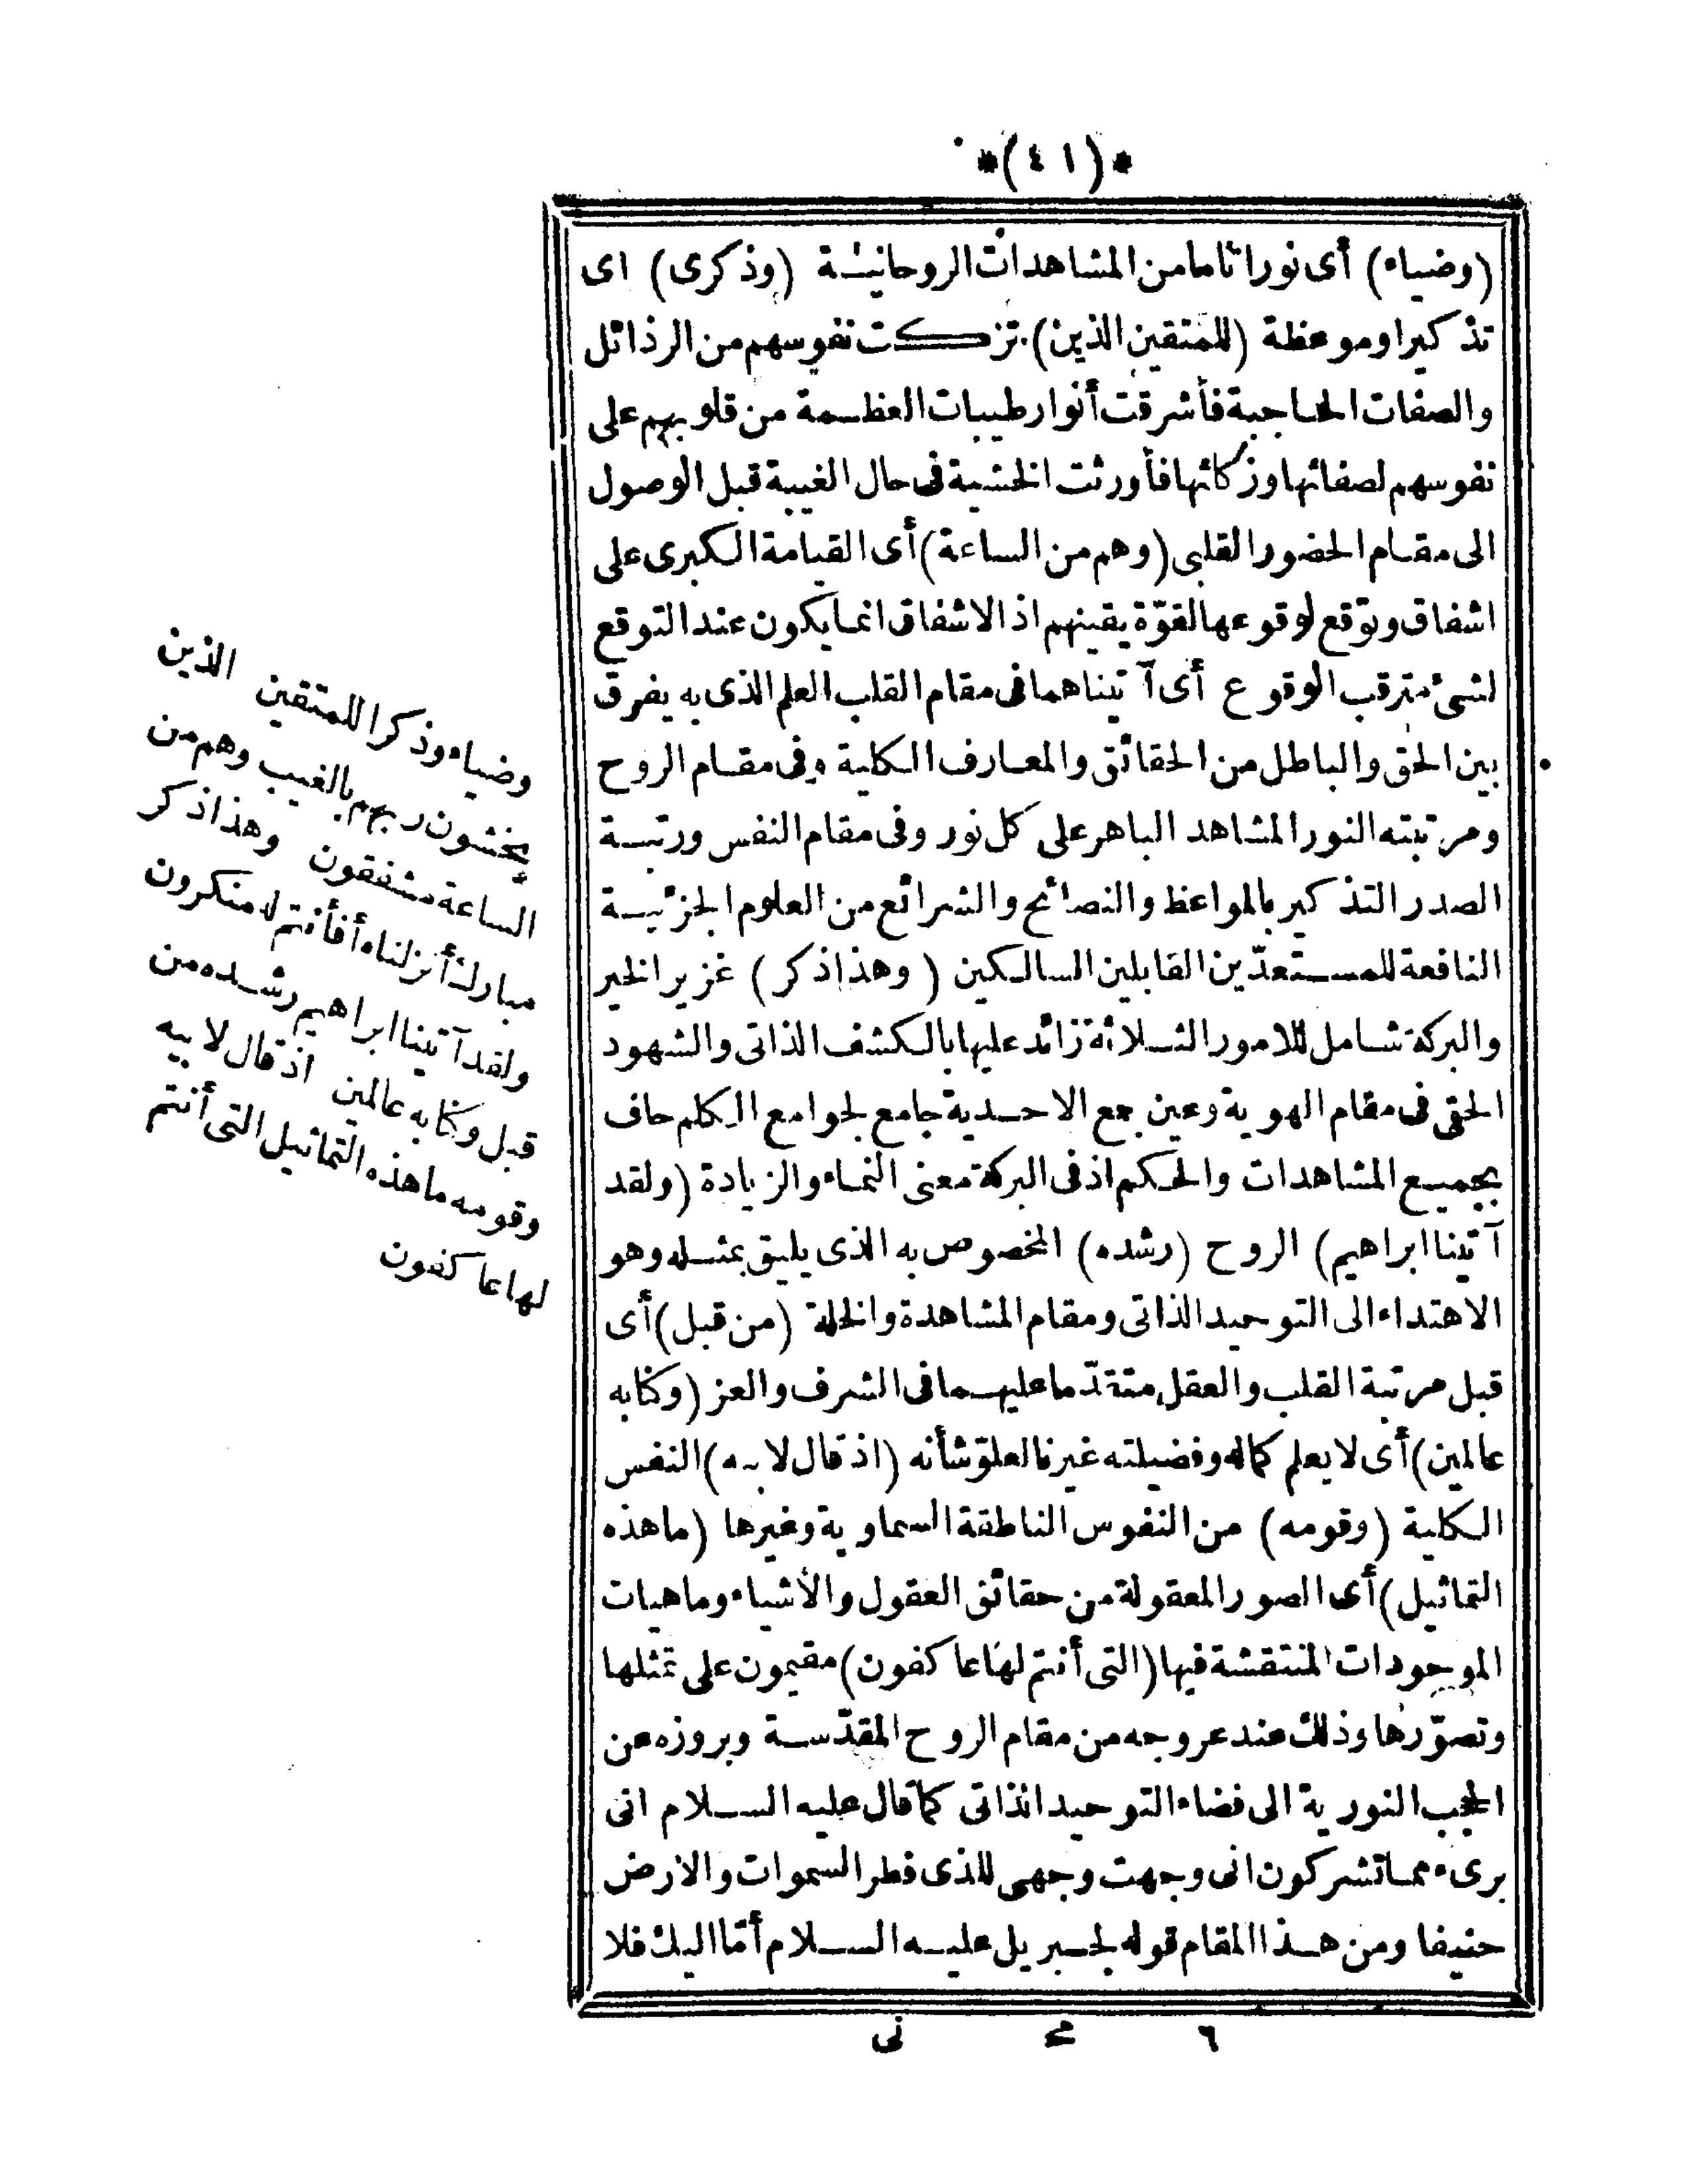 *(٤١)*
(وضياء) أى نورا تاما من المشاهدات الروحانية (وذكرى) اى
تذكيرا وموعظة (للمتقين الذين) تزكت نفوسهم من الرذائل
والصفات الحاجبة فأشرقت أنوار طيبات العظمة من قلوبهم على
نفوسهم لصفائها وزكائها فأورثت الخشية فى حال الغيبة قبل الوصول
الى مقام الحضور القلبى (وهم من الساعة) أى القيامة الكبرى على
اشفاق وتوقع لوقوعها لقوّة يقينهم اذ الاشفاق انما يكون عند التوقع
لشئ مترقب الوقوع أى آتيناهما فى مقام القلب العلم الذى به يفرق
بين الحق والباطل من الحقائق والمعارف الكلية وفى مقام الروح
ومرتبته النور المشاهد الباهر على كل نور وفى مقام النفس ورتبة
الصدر التذكير بالمواعظ والنصائح والشرائع من العلوم الجزئية
النافعة للمستعدّين القابلين السالكين (وهذا ذكر) غزير الخير
والبركة شامل للامور الثلاثة زائد عليها بالكشف الذاتى والشهود
الحقى فى مقام الهوية وعين جمع الاحدية جامع لجوامع الكلم حاف
بجميع المشاهدات والحكم اذ فى البركة معنى النماء والزيادة (ولقد
آتينا ابراهيم) الروح (رشده) المخصوص به الذى يليق بمثله وهو
الاهتداء الى التوحيد الذاتى ومقام المشاهدة والخلة (من قبل) أى
قبل مرتبة القلب والعقل متقدّما عليهما فى الشرف والعز (وكنا به
عالمين) أى لا يعلم كماله وفضيلته غيرنا لعلوّ شأنه (اذ قال لابيه) النفس
الكلية (وقومه) من النفوس الناطقة السماوية وغيرها (ما هذه
التماثيل) أى الصور المعقولة من حقائق العقول والأشياء وماهيات
الموجودات المنتقشة فيها (التى أنتم لها عاكفون) مقيمون على تمثلها
وتصوّرها وذلك عند عروجه من مقام الروح المقدّسة وبروزه عن
الحجب النورية الى فضاء التوحيد الذاتى كما قال عليه السلام انى
برىء مما تشركون انى وجهت وجهى للذى فطر السموات والارض
حنيفا ومن هذا المقام قوله لجبريل عليه السلام أمّا اليك فلا
وضياء وذكرا للمتقين الذين
يخشون ربهم بالغيب وهم من
الساعة مشفقون وهذا ذكر
مبارك أنزلناه أفأنتم له منكرون
ولقد آتينا ابراهيم رشده من
قبل وكنا به عالمين اذ قال لابيه
وقومه ما هذه التماثيل التى أنتم
لها عاكفون
٦ مح نى